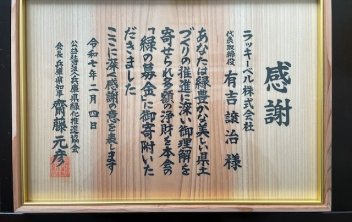 感謝
ラッキーベル株式会社
代表取締役 有吉譲治様
あなたは緑豊かな美しい県土
づくりの推進に深い御理解を
寄せられ多額の浄財を本会の
「緑の募金」に御寄附いた
だきました
ここに深く感謝の意を表します
令和七年二月四日
公益社団法人兵庫県緑化推進協会
会長 兵庫県知事 齋藤元彦